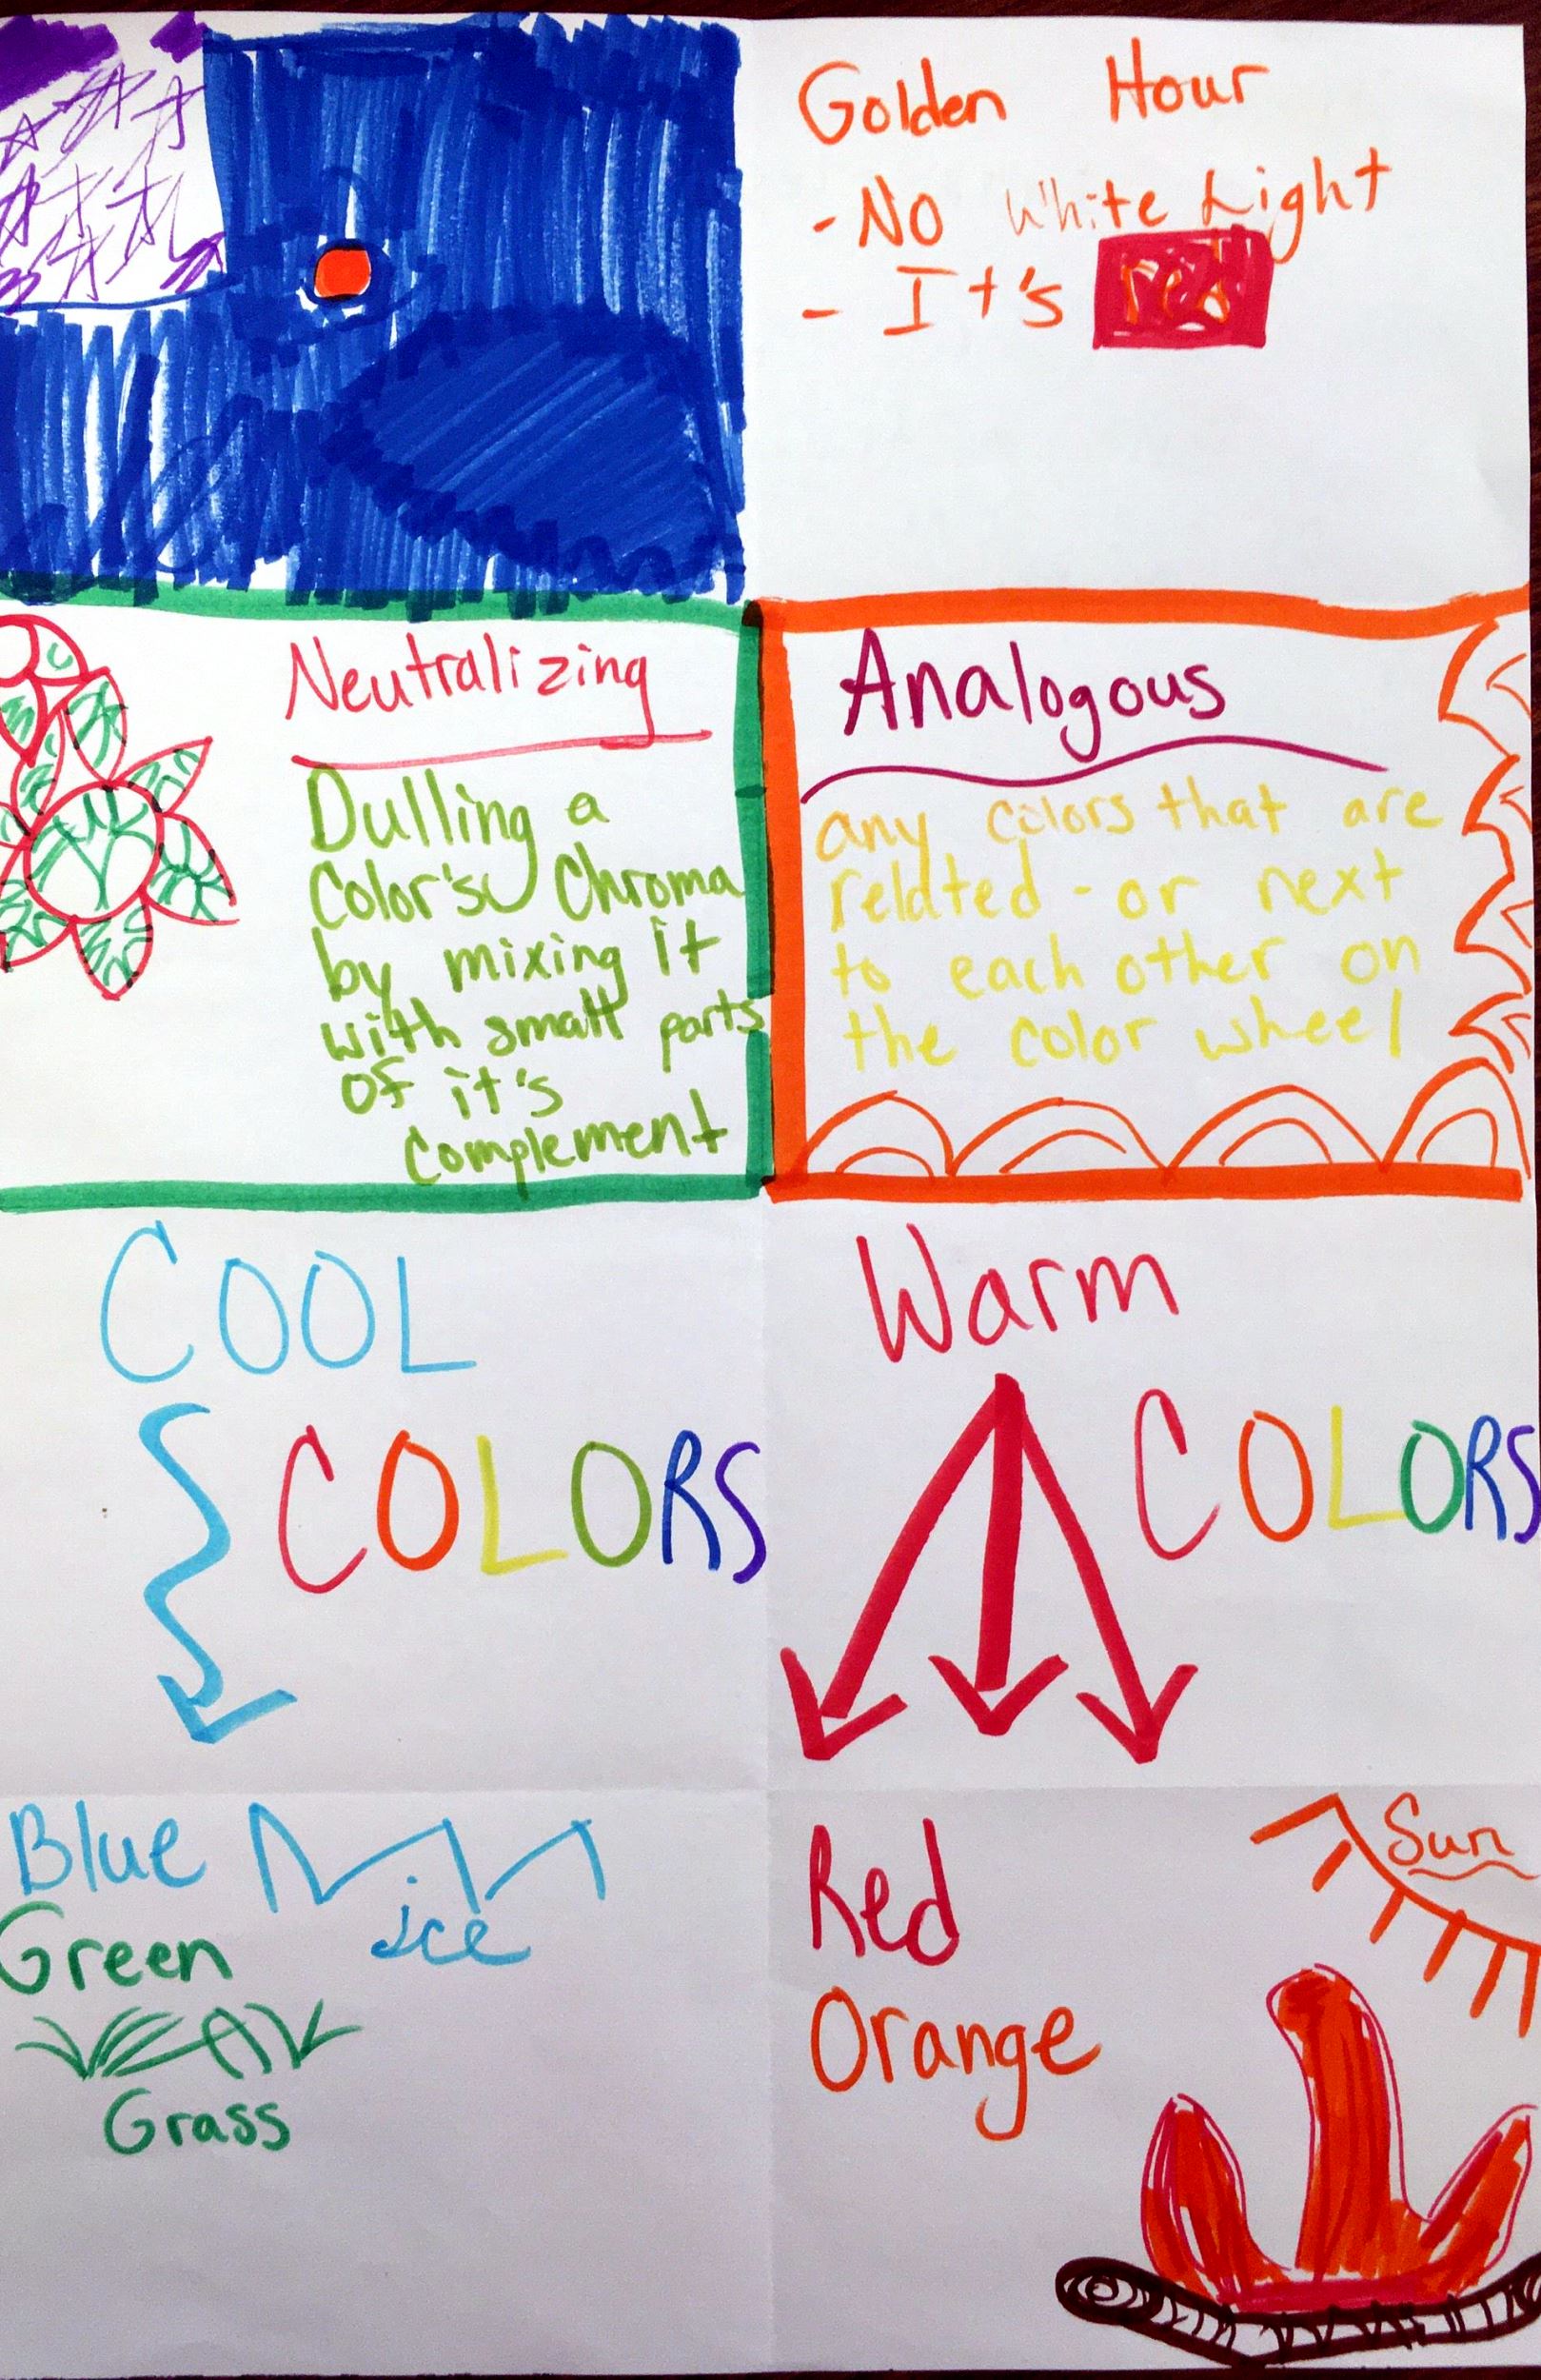 Golden Hour
- No White Light
- It's red
Neutralizing
Dulling a
Color's Chroma
by mixing it
with small parts
of it's
Complement
Analogous
any colors that are
related - or next
to each other on
the color wheel
COOL
COLORS
Warm
COLORS
Blue
ice
Green
Grass
Red
Orange
Sun